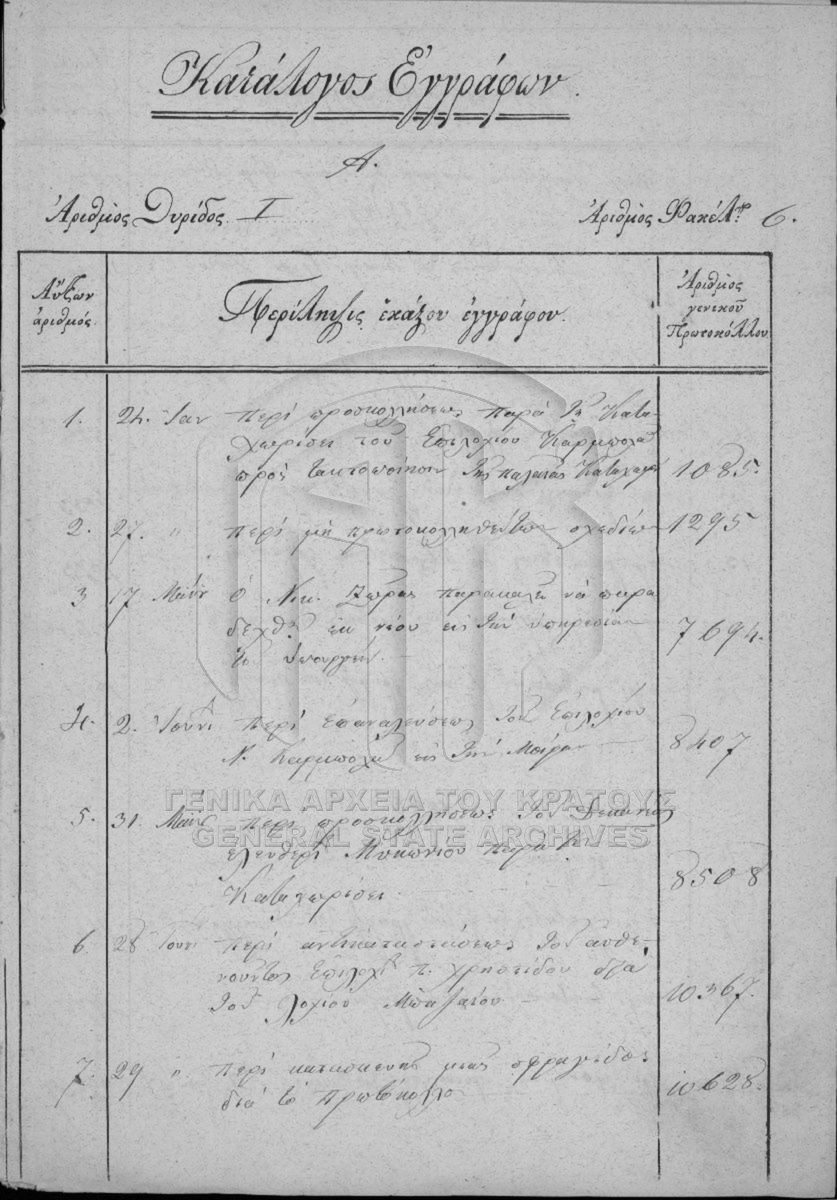 Κατάλογος Ἐγγράφων.
Α.
Ἀριθμὸς Θυρίδος I
Ἀριθμὸς Φακέλ. 6.
Αὔξων
ἀριθμός.
Περίληψις ἑκάστου ἐγγράφου.
Ἀριθμὸς
γενικοῦ
Πρωτοκόλλου
1. 24. Ἰαν περὶ προσκολλήσεως παρὰ τῇ Κατα-
χωρίσει τοῦ Ἐπιλοχίου Καρμπολᾶ
πρὸς τακτοποίησιν τῆς παλαιᾶς 1085.
2. 27. " περὶ μὴ πρωτοκολληθέντων σχεδίων 1295
3 17 Μαΐου ὁ Νικ. παρακαλεῖ νὰ παρα
δεχθῇ ἐκ νέου εἰς τὴν ὑπηρεσίαν
τοῦ Ὑπουργείου. 7694.
4. 2. Ἰουνί περὶ ἐπαναλεύσεως τοῦ Ἐπιλοχίου
Ν. Καρμπολᾶ εἰς τὴν Μοῖραν 8407
5. 31. Μαΐου περὶ προσκολλήσεως τοῦ Δεκανέως
Ἐλευθερί Μυκωνίου παρὰ τῇ
Καταχωρίσει. 8508
6. 28 Ἰουνί περὶ ἀντικαταστάσεως τοῦ ἀσθε-
νοῦντος Ἐπιλοχί π. Χρηστίδου διὰ
τοῦ λοχίου 10367.
7. 29 " περὶ κατασκευῆς μιᾶς σφραγίδος
διὰ τὸ Πρωτόκολλο 10628.
ΓΕΝΙΚΑ ΑΡΧΕΙΑ ΤΟΥ ΚΡΑΤΟΥΣ
GENERAL STATE ARCHIVES